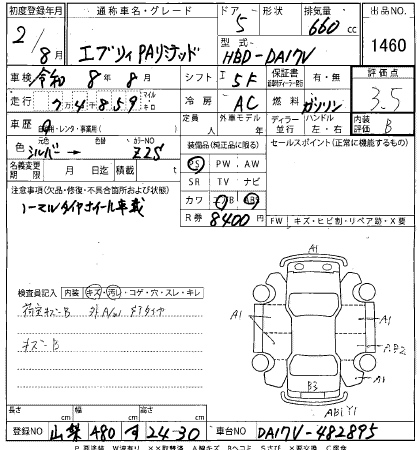 初度登録年月 通称車名・グレード ドア 形状 排気量 出品NO.
2/8月 エブリィ PAリミテッド 5 660 cc 1460
型式 HBD-DA17V
車検 令和 8年 8月 シフト I 5F 保証書 有・無 評価点
走行 7 4 8 5 9 マイル キロ 冷房 AC 燃料 ガソリン 3.5
車歴 自家用・レンタ・事業用( ) 定員 人 外車モデル 年 ディーラー 並行 ハンドル 左・右 内装 B
色 元色 シルバー → 色替 カラーNO Z2S 装備品(純正品に限る) セールスポイント(正常に機能するもの)
名義変更期限 月 日 積載 t PS PW AW
注意事項(欠品・修復・不具合箇所および状態) SR TV ナビ
ノーマルタイヤホイール車載 カワ エアB ABS
R券 8400円 FW キズ・ヒビ割・リペア跡・X要
検査員記入 内装 キズ・汚レ・コゲ・穴・スレ・キレ
荷室キズB
キズB
A1
A1
A1
A1
B3
長さ cm 幅 cm 高さ cm
登録NO 山梨 480 す 24-30 車台NO DA17V-482895